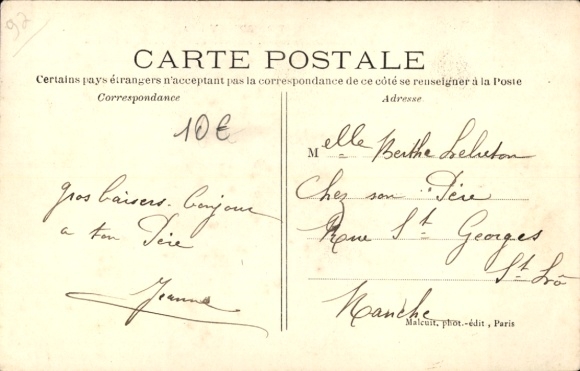 92
CARTE POSTALE
Certains pays étrangers n'acceptant pas la correspondance de ce côté se renseigner à la Poste
Correspondance
Adresse
10€
gros baisers - bonjour
a ton Père
Jeanne
Melle Berthe Lebreton
Chez son Père
Rue St Georges
St Lô
Manche
Malcuit, phot.-édit, Paris